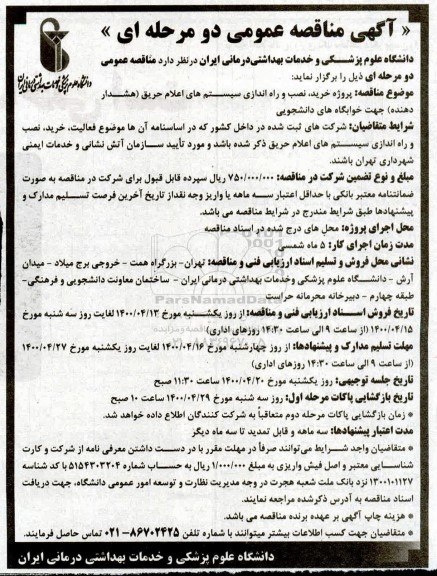 « آگهی مناقصه عمومی دو مرحله ای »
دانشگاه علوم پزشکی و خدمات بهداشتی درمانی ایران درنظر دارد مناقصه عمومی
دو مرحله ای ذیل را برگزار نماید:
موضوع مناقصه: پروژه خرید، نصب و راه اندازی سیستم های اعلام حریق (هشدار
دهنده) جهت خوابگاه های دانشجویی
شرایط متقاضیان: شرکت های ثبت شده در داخل کشور که در اساسنامه آن ها موضوع فعالیت، خرید، نصب
و راه اندازی سیستم های اعلام حریق ذکر شده باشد و مورد تأیید سازمان آتش نشانی و خدمات ایمنی
شهرداری تهران باشند.
مبلغ و نوع تضمین شرکت در مناقصه: ۷۵۰/۰۰۰/۰۰۰ ریال سپرده قابل قبول برای شرکت در مناقصه به صورت
ضمانتنامه معتبر بانکی با حداقل اعتبار سه ماهه یا واریز وجه نقد از تاریخ آخرین فرصت تسلیم مدارک و
پیشنهادها طبق شرایط مندرج در شرایط مناقصه می باشد.
محل اجرای پروژه: محل های درج شده در اسناد مناقصه
مدت زمان اجرای کار: ۵ ماه شمسی
نشانی محل فروش و تسلیم اسناد ارزیابی فنی و مناقصه: تهران- بزرگراه همت - خروجی برج میلاد - میدان
آرش - دانشگاه علوم پزشکی وخدمات بهداشتی درمانی ایران - ساختمان معاونت دانشجویی و فرهنگی-
طبقه چهارم - دبیرخانه محرمانه حراست
تاریخ فروش اسناد ارزیابی فنی و مناقصه: از روز یکشنبه مورخ ۱۴۰۰/۰۴/۱۳ لغایت روز سه شنبه مورخ
۱۴۰۰/۰۴/۱۵ (از ساعت ۹ الی ساعت ۱۴:۳۰ روزهای اداری)
مهلت تسلیم مدارک و پیشنهادها: از روز چهارشنبه مورخ ۱۴۰۰/۰۴/۱۶ لغایت روز یکشنبه مورخ ۱۴۰۰/۰۴/۲۷
(از ساعت ۹ الی ساعت ۱۴:۳۰ روزهای اداری)
تاریخ جلسه توجیهی: روز یکشنبه مورخ ۱۴۰۰/۰۴/۲۰ ساعت ۱۱:۳۰ صبح
تاریخ بازگشایی پاکات مرحله اول: روز سه شنبه مورخ ۱۴۰۰/۰۴/۲۹ ساعت ۱۰ صبح
* زمان بازگشایی پاکات مرحله دوم متعاقباً به شرکت کنندگان اطلاع داده خواهد شد.
مدت اعتبار پیشنهادها: سه ماهه و قابل تمدید تا سه ماه دیگر
* متقاضیان واجد شرایط می‌توانند صرفاً در مهلت مقرر با در دست داشتن معرفی نامه از شرکت و کارت
شناسایی معتبر و اصل فیش واریزی به مبلغ ۱/۰۰۰/۰۰۰ ریال به حساب شماره ۵۱۵۴۳۰۳۲۰۴ با کد شناسه
۱۳۰۰۱۰۱۱۲۷ نزد بانک ملت شعبه هجرت در وجه مدیریت نظارت و توسعه امور عمومی دانشگاه، جهت دریافت
اسناد مناقصه به آدرس ذکرشده مراجعه نمایند.
* هزینه چاپ آگهی بر عهده برنده مناقصه می باشد.
* متقاضیان جهت کسب اطلاعات بیشتر میتوانند با شماره تلفن ۸۶۷۰۲۴۲۵- ۰۲۱ تماس حاصل فرمایند.
دانشگاه علوم پزشکی و خدمات بهداشتی درمانی ایران
ParsNamadData